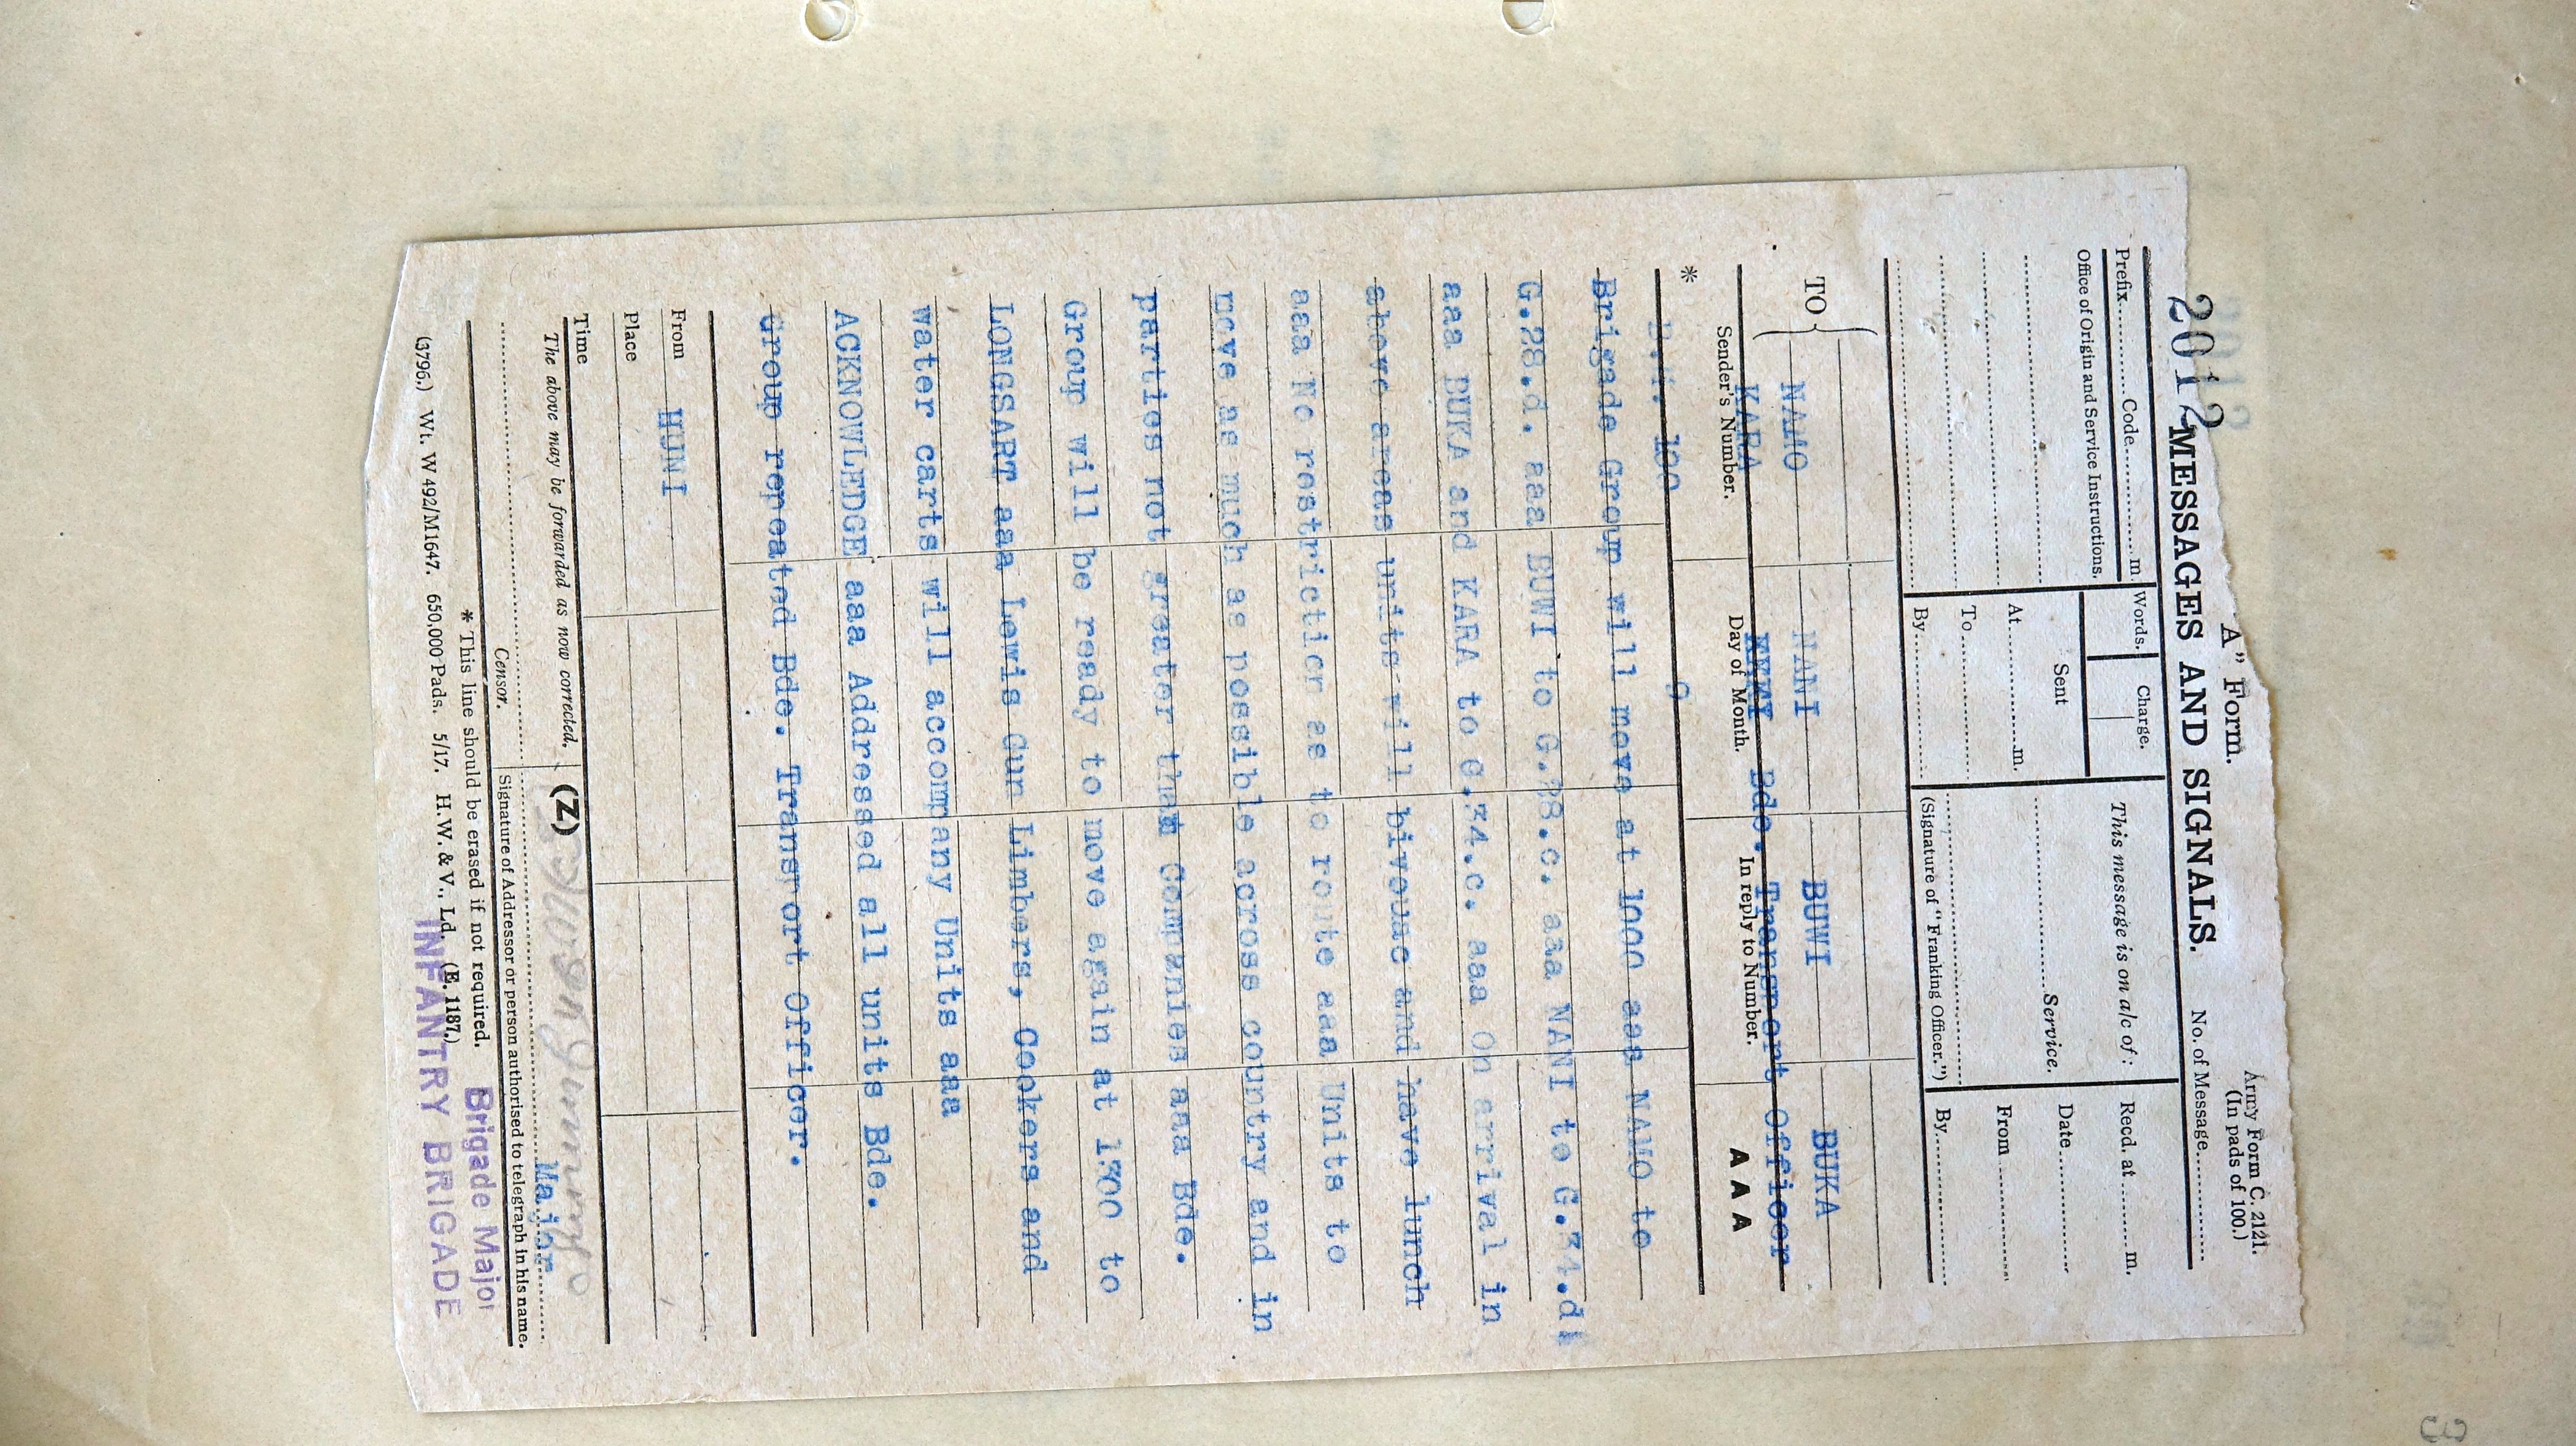 2012
"A" Form.
Army Form C. 2121.
(In pads of 100.)
MESSAGES AND SIGNALS.
No. of Message
Prefix Code m.
Words.
Charge.
This message is on a/c of:
Recd. at m.
Office of Origin and Service Instructions.
Sent
Date
At m.
Service.
From
To
By
(Signature of "Franking Officer.")
By
TO
NAMO NANI BUWI BUKA
KARA Bde. Transport Officer
* Sender's Number. Day of Month. In reply to Number. A A A
100 9
Brigade Group will move at 1000 aaa NAMO to
G.28.d. aaa BUWI to G.28.c. aaa NANI to G.34.d
aaa BUKA and KARA to G.34.c. aaa On arrival in
above areas units will bivouac and have lunch
aaa No restriction as to route aaa Units to
move as much as possible across country and in
parties not greater than Companies aaa Bde.
Group will be ready to move again at 1300 to
LONGSART aaa Lewis Gun Limbers, Cookers and
water carts will accompany Units aaa
ACKNOWLEDGE aaa Addressed all units Bde.
Group repeated Bde. Transport Officer.
From HUNI
Place
Time
The above may be forwarded as now corrected. (Z)
Major
Censor. Signature of Addressor or person authorised to telegraph in his name.
* This line should be erased if not required.
Brigade Major
(3796.) Wt. W 492/M1647. 650,000 Pads. 5/17. H.W. & V., Ld. (E. 1187.)
INFANTRY BRIGADE